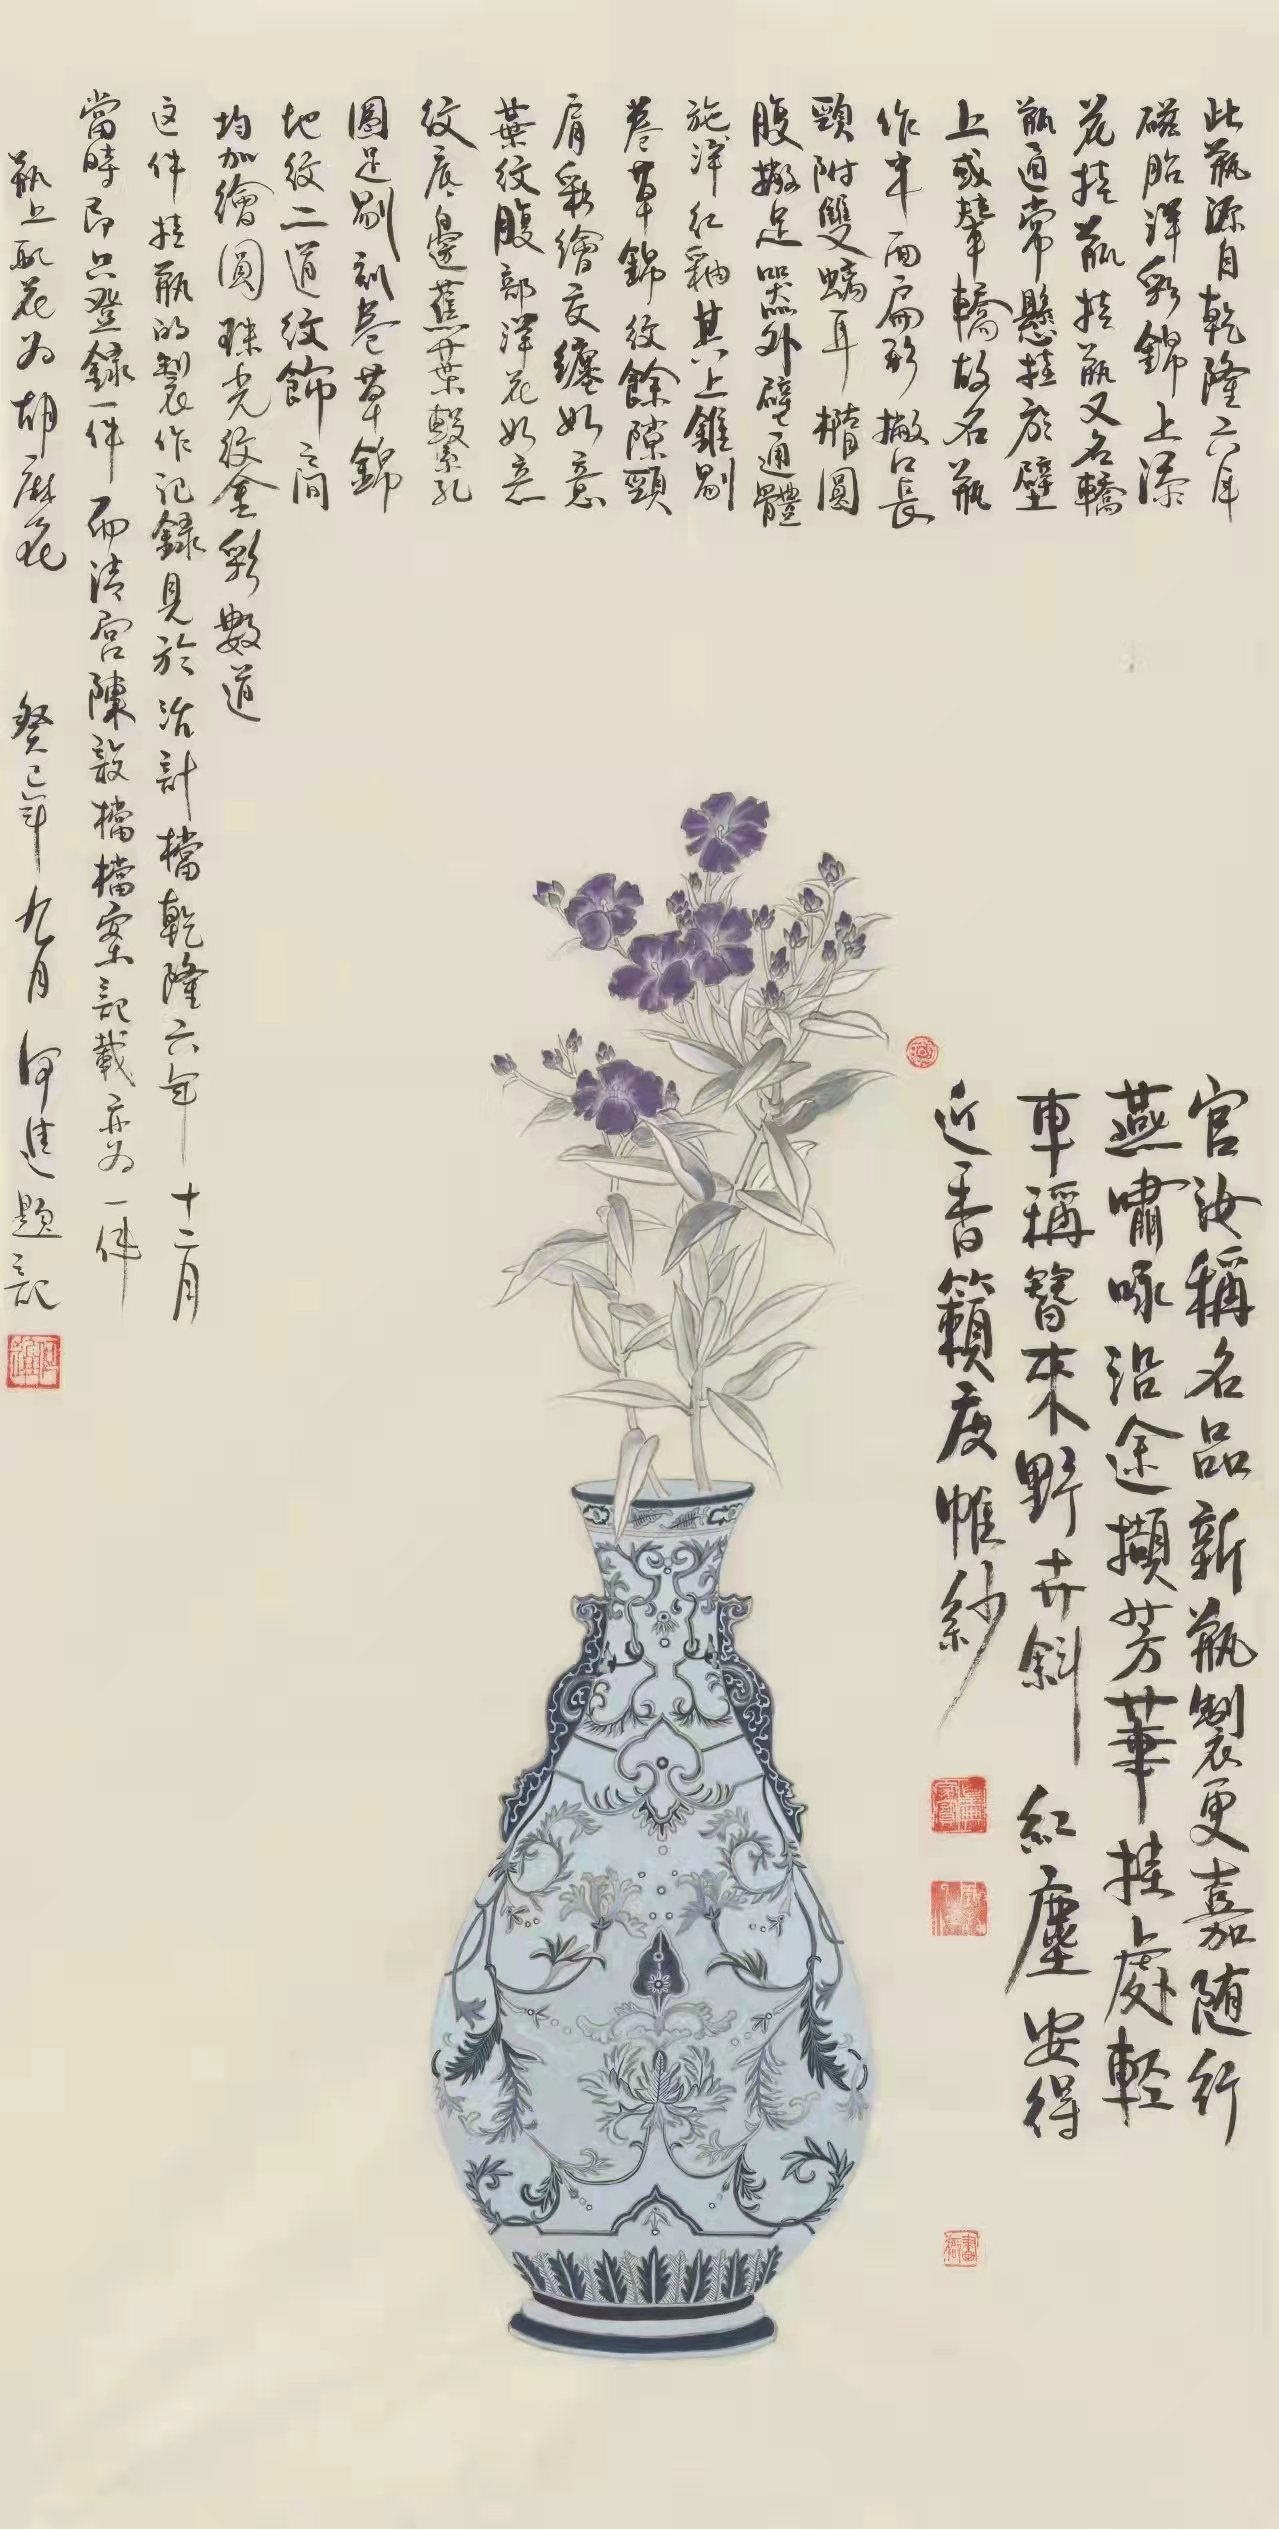 此瓶源自乾隆六年
磁胎洋彩錦上添
花挂瓶挂瓶又名轎
瓶通常懸挂於壁
上或輦轎故名瓶
作半面扁形撇口長
頸附雙螭耳橢圓
腹撇足器外壁通體
施洋紅釉其上錐剔
卷草錦紋餘隙頸
肩彩繪交纏如意
葉紋腹部洋花如意
紋底邊蕉葉紋
圓足剔刻卷草錦
地紋二道紋飾間
均加繪圓珠光紋金彩數道
这件挂瓶的製作记録見於活計檔乾隆六年十二月
當時即只登録一件而清宫陳設檔檔案記載亦为一件
瓶上配花为胡麻花 癸巳年九月 題記
官汝稱名品新瓶製更嘉随行
燕嘯咏沿途擷芳華挂處輕
車稱簪來野卉斜紅塵安得
近香籟度帷紗